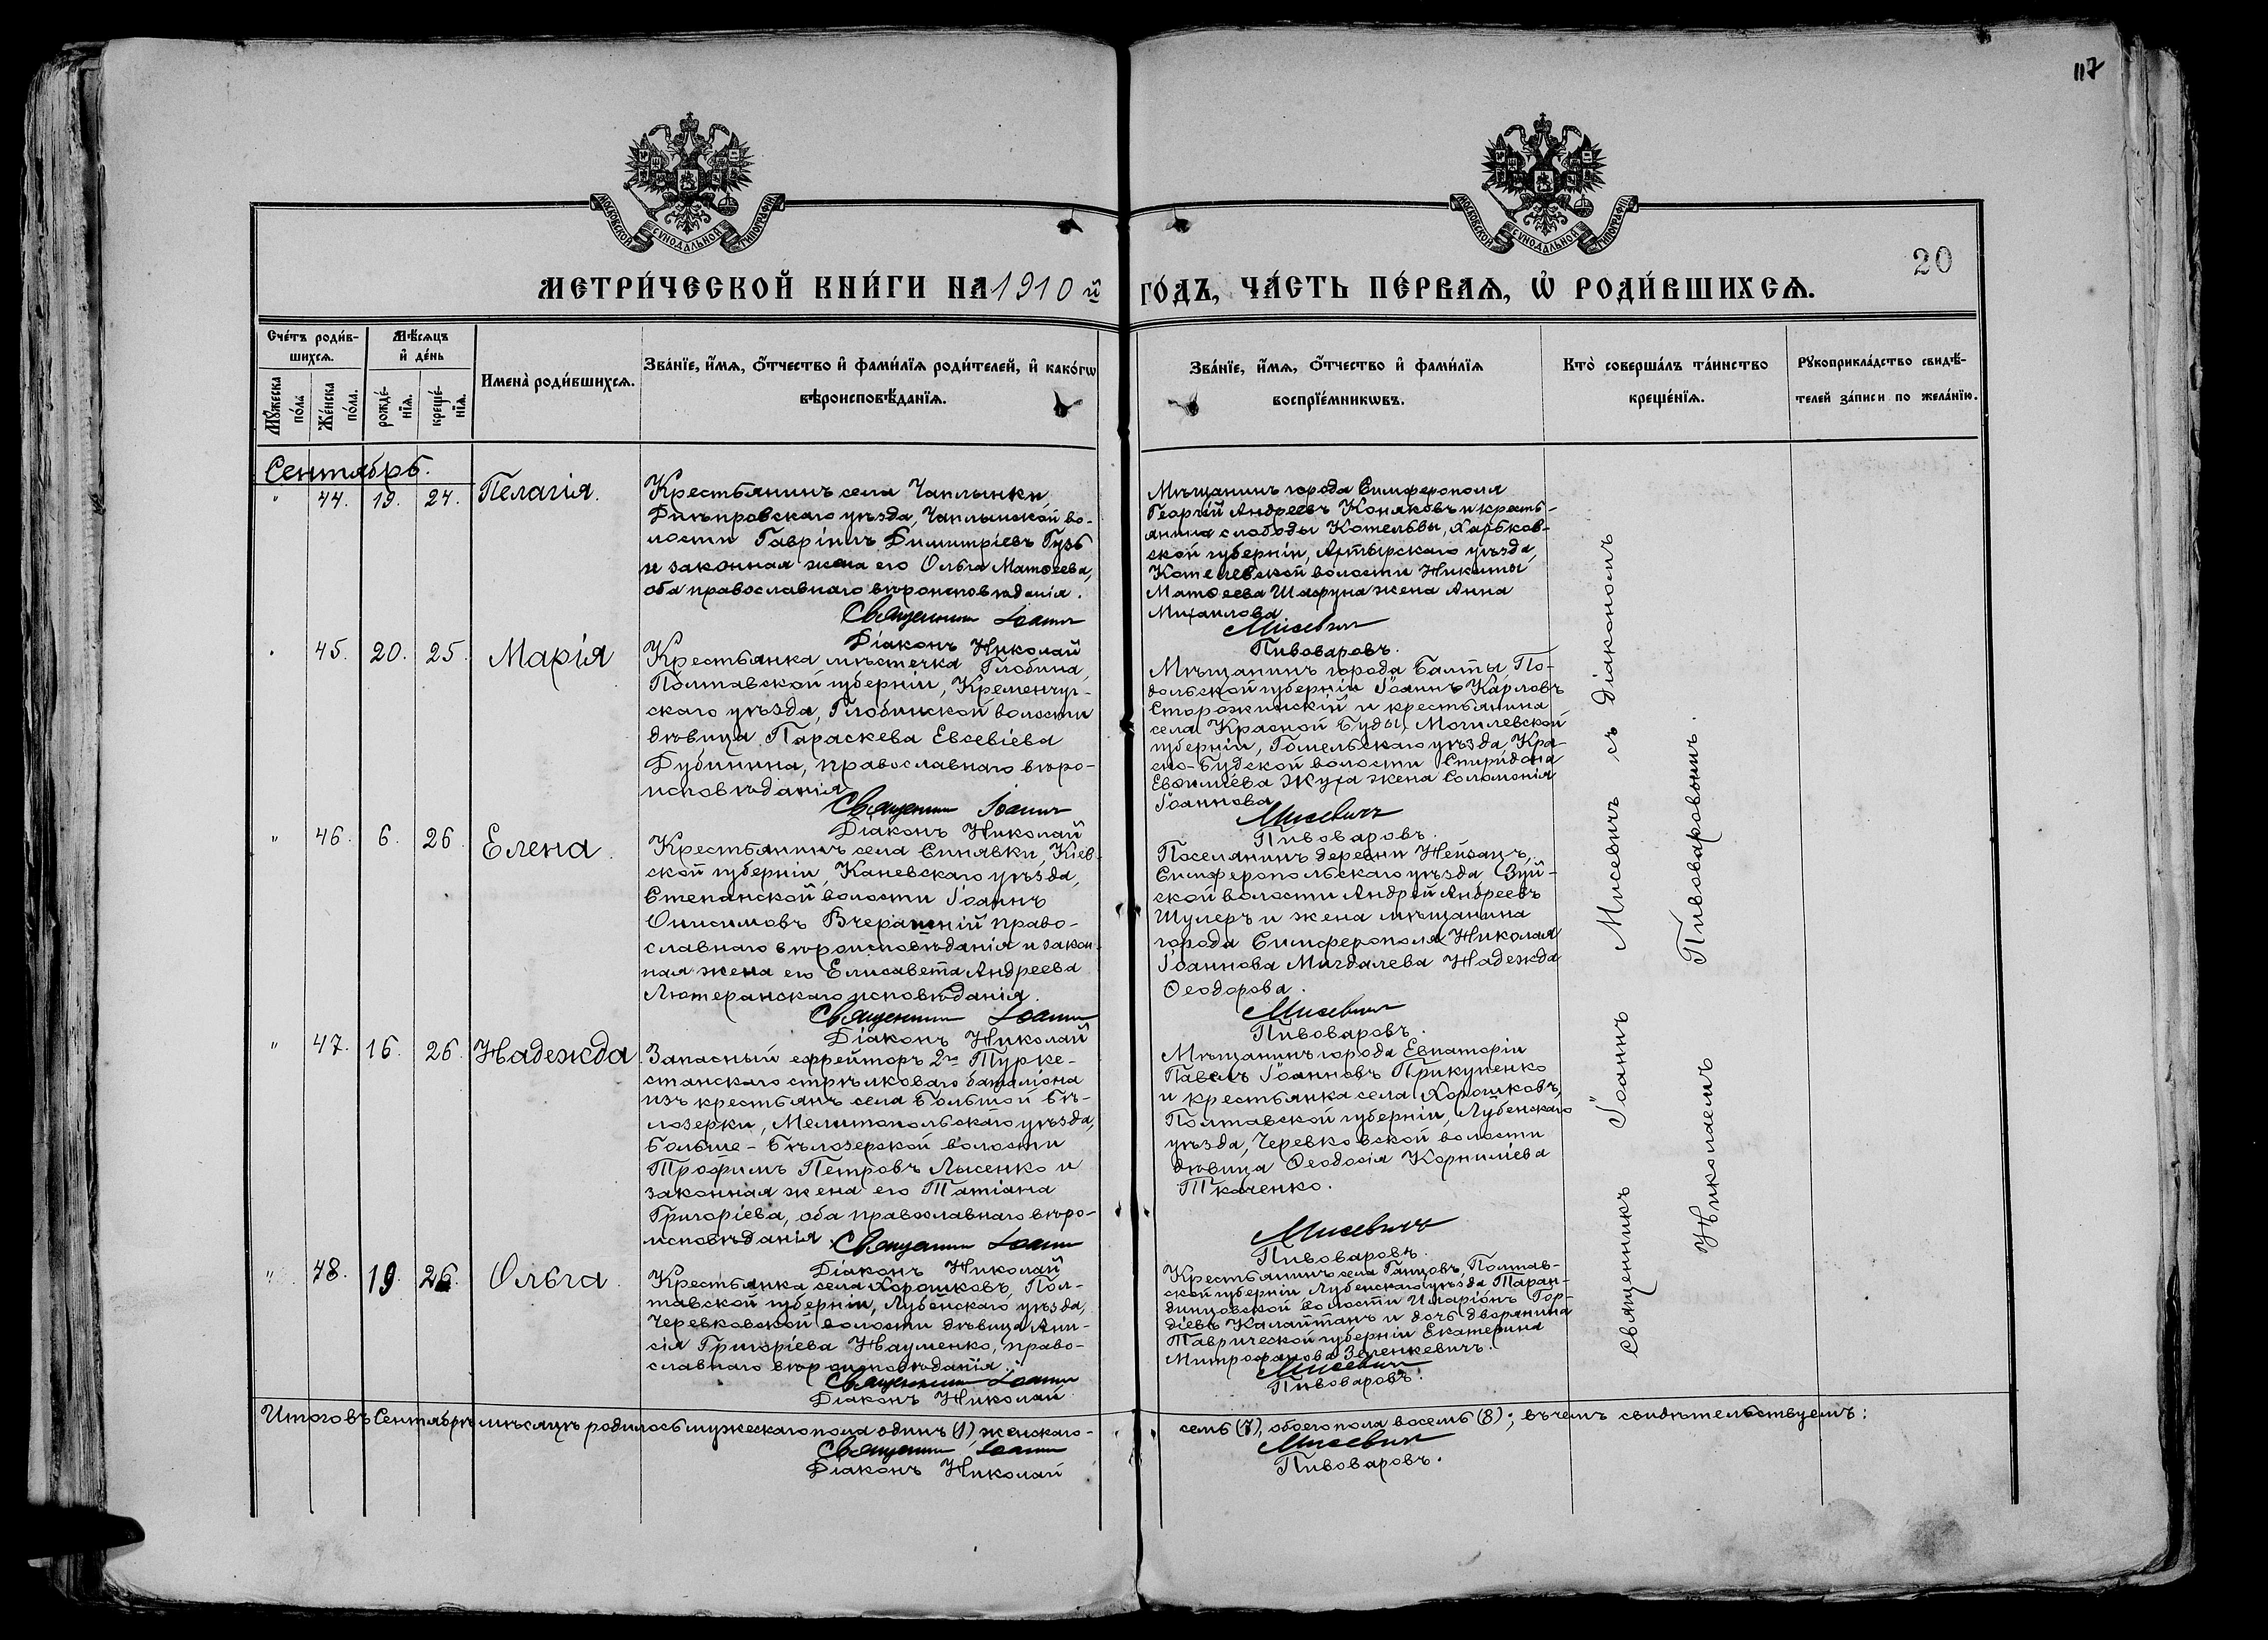 117
МОСКОВСКОЙ СѴНОДАЛЬНОЙ ТИПОГРАФІИ
МОСКОВСКОЙ СѴНОДАЛЬНОЙ ТИПОГРАФІИ
20
МЕТРИ́ЧЕСКОЙ КНИ́ГИ НА 1910 й
ГО́ДЪ, ЧА́СТЬ ПЕ́РВАѦ, Ѡ҆ РОДИ́ВШИХСѦ.
Сче́тъ роди́в-
шихсѧ.
Мꙋ́жеска
по́ла
Же́нска
по́ла.
Мѣ́сѧцъ
и҆ де́нь
рожде́-
нїѧ.
креще́-
нїѧ.
Имена̀ роди́вшихсѧ.
Зва́нїе, и҆́мѧ, ѻ҆́тчество и҆ фами́лїѧ роди́телей, и҆ како́гѡ
вѣроисповѣ́данїѧ.
Зва́нїе, и҆́мѧ, ѻ҆́тчество и҆ фами́лїѧ
воспрїе́мникѡвъ.
Кто̀ соверша́лъ та́инство
креще́нїѧ.
Рꙋкоприкла́дство свидѣ́-
телей за́писи по жела́нїю.
Сентябрь.
" 44. 19. 24. Пелагія.
Крестьянинъ села Чаплынки
Днѣпровскаго уѣзда, Чаплынской во-
лости Гавріилъ Димитріевъ Гузь
и законная жена его Ольга Матѳеева,
оба православнаго вѣроисповѣданія.
Священникъ Іоаннъ
Діаконъ Николай
Мѣщанинъ города Симферополя
Георгій Андреевъ Коняковъ и кресть-
янина слободы Котельвы, Харьков-
ской губерніи, Ахтырскаго уѣзда,
Котелевской волости Никиты
Матѳеева Шафуна жена Анна
Михаилова
Мисевичъ
Пивоваровъ.
" 45. 20. 25. Марія
Крестьянка мѣстечка Глобина,
Полтавской губерніи, Кременчуг-
скаго уѣзда, Глобинской волости
дѣвица Параскева Евсевіева
Дубинина, православнаго вѣро-
исповѣданія
Священникъ Іоаннъ
Діаконъ Николай
Мѣщанинъ города Балты, По-
дольской губерніи Іоаннъ Карловъ
Сторожинскій и крестьянина
села Красной Буды, Могилевской
губерніи, Гомельскаго уѣзда, Кра-
сно-Будской волости Спиридона
Евѳиміева Жука жена Соломонія
Іоаннова
Мисевичъ
Пивоваровъ.
" 46. 6. 26. Елена.
Крестьянинъ села Синявки, Кіев-
ской губерніи, Каневскаго уѣзда,
Степанской волости Іоаннъ
Онисимовъ Вчерашній право-
славнаго вѣроисповѣданія и закон-
ная жена его Елисавета Андреева
Лютеранскаго исповѣданія.
Священникъ Іоаннъ
Діаконъ Николай
Поселянинъ деревни Нейзацъ,
Симферопольскаго уѣзда Зуй-
ской волости Андрей Андреевъ
Шулеръ и жена мѣщанина
города Симферополя Николая
Іоаннова Мигдалева Надежда
Ѳеодорова.
Мисевичъ
Пивоваровъ.
" 47. 16. 26. Надежда
Запасный ефрейторъ 2го Турке-
станскаго стрѣлковаго баталіона
изъ крестьянъ села Большой Бѣ-
лозерки, Мелитопольскаго уѣзда,
Больше-Бѣлозерской волости
Трофимъ Петровъ Лысенко и
законная жена его Татіана
Григоріева, оба православнаго вѣро-
исповѣданія.
Священникъ Іоаннъ
Діаконъ Николай
Мѣщанинъ города Евпаторіи
Павелъ Іоанновъ Прикупенко
и крестьянка села Хорошковъ,
Полтавской губерніи, Лубенскаго
уѣзда, Черевковской волости
дѣвица Ѳеодосія Корниліева
Ткаченко.
Мисевичъ
Пивоваровъ.
" 48. 19. 26. Ольга.
Крестьянка села Хорошковъ, Пол-
тавской губерніи, Лубенскаго уѣзда,
Черевковской волости дѣвица Ани-
сія Григоріева Науменко, право-
славнаго вѣроисповѣданія.
Священникъ Іоаннъ
Діаконъ Николай
Крестьянинъ села Ганцовъ, Полтав-
ской губерніи Лубенскаго уѣзда Таран-
динцовской волости Иларіонъ Гор-
діевъ Калайтанъ и дочь дворянина
Таврической губерніи Екатерина
Митрофанова Зеленкевичъ.
Мисевичъ
Пивоваровъ.
Священникъ Іоаннъ Мисевичъ съ діакономъ
Николаемъ Пивоваровымъ.
Итого въ Сентябрѣ мѣсяцѣ родилось мужескаго пола одинъ (1), женскаго-
семь (7), обоего пола восемь (8); въ чемъ свидѣтельствуемъ:
Священникъ Іоаннъ
Діаконъ Николай
Мисевичъ
Пивоваровъ.